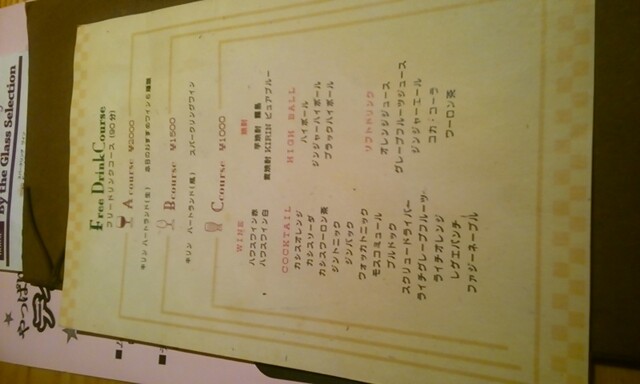 By the Glass Selection
やっぱ
Free Drink Course
フリードリンクコース (90分)
A course ¥2000
キリン ハートランド(生) 本日のおすすめワイン6種類
B course ¥1500
キリン ハートランド(瓶) スパークリングワイン
C course ¥1000
WINE
ハウスワイン赤
ハウスワイン白
焼酎
芋焼酎 霧島
麦焼酎 KIRIN ピュアブルー
COCKTAIL
カシスオレンジ
カシスソーダ
カシスウーロン茶
ジントニック
ジンバック
ウォッカトニック
モスコミュール
ブルドック
スクリュードライバー
ライチグレープフルーツ
ライチオレンジ
レゲエパンチ
ファジーネーブル
HIGH BALL
ハイボール
ジンジャーハイボール
ブラックハイボール
ソフトドリンク
オレンジジュース
グレープフルーツジュース
ジンジャーエール
コカ・コーラ
ウーロン茶